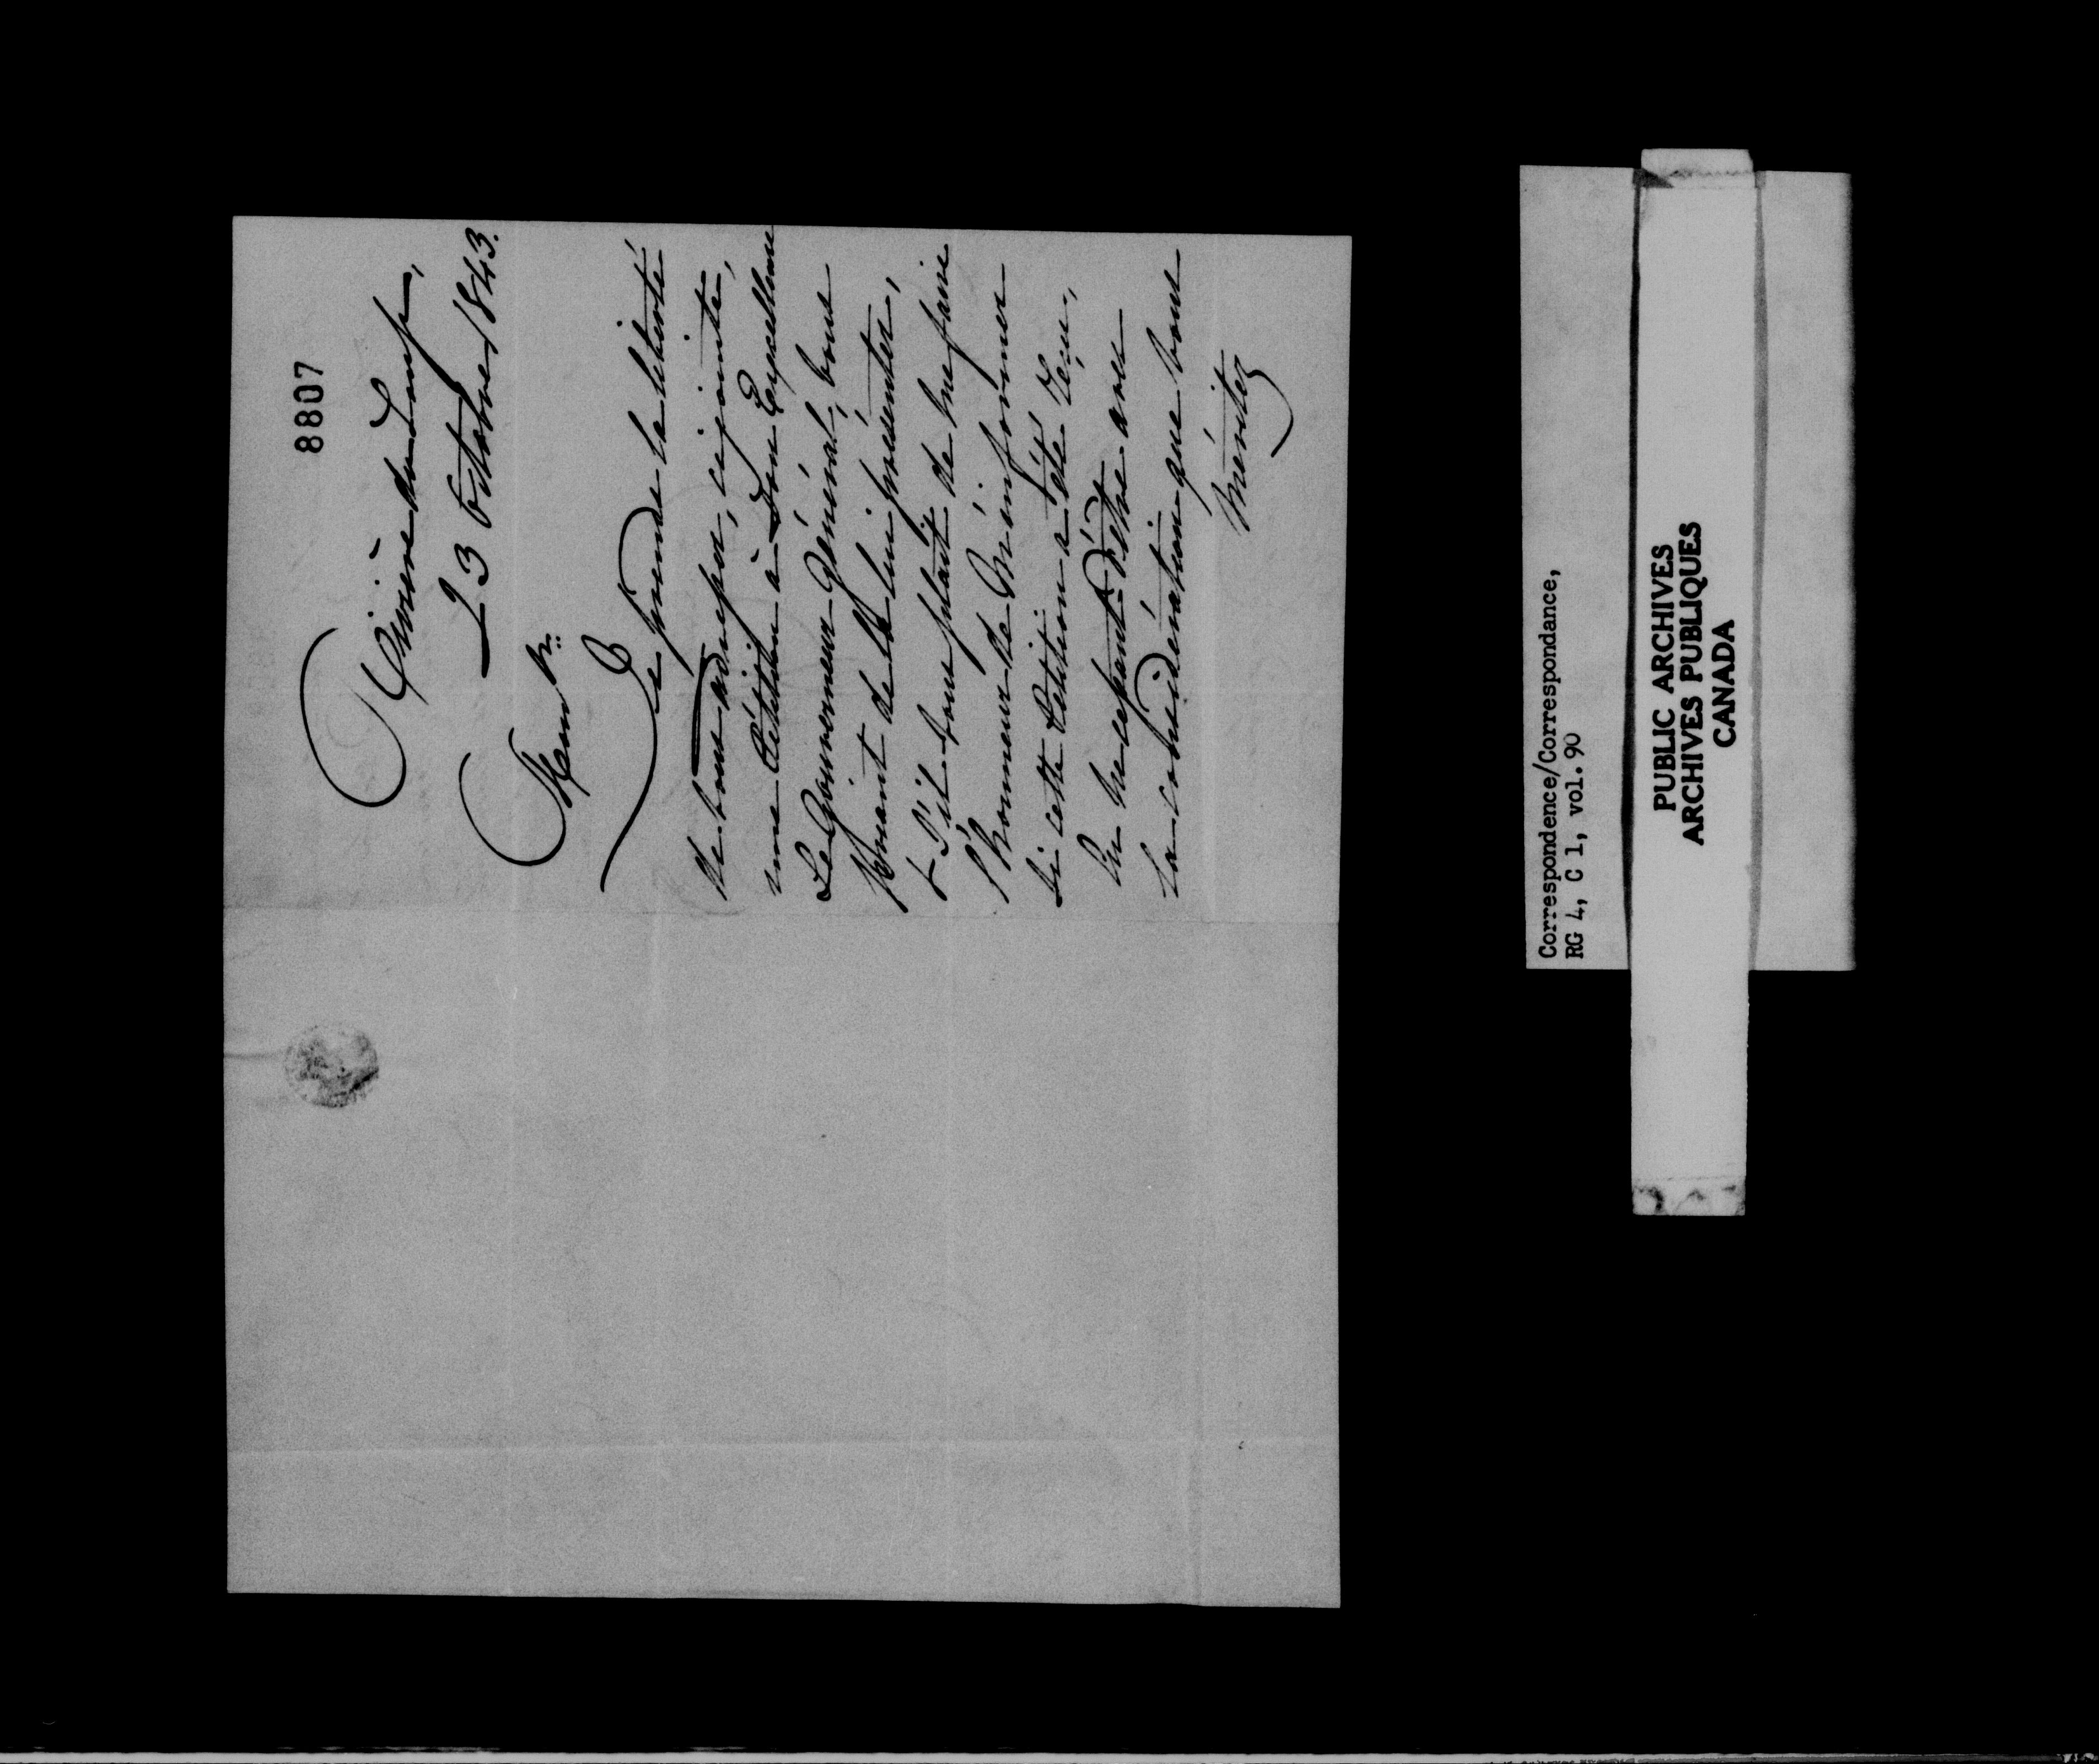 8807
Rivière du Loup,
23 Octobre 1843.
Monsr.
Je prends la liberté
de vous adresser, ci jointe,
une Pétition à Son Excellence
Le Gouverneur Général, vous
priant de la lui présenter,
& S'il vous plait de me faire
l'honneur de M'informer
Si cette Petition a été reçu,
la considération que vous
méritez
Correspondence/Correspondance,
RG 4, C 1, vol. 90
PUBLIC ARCHIVES
ARCHIVES PUBLIQUES
CANADA